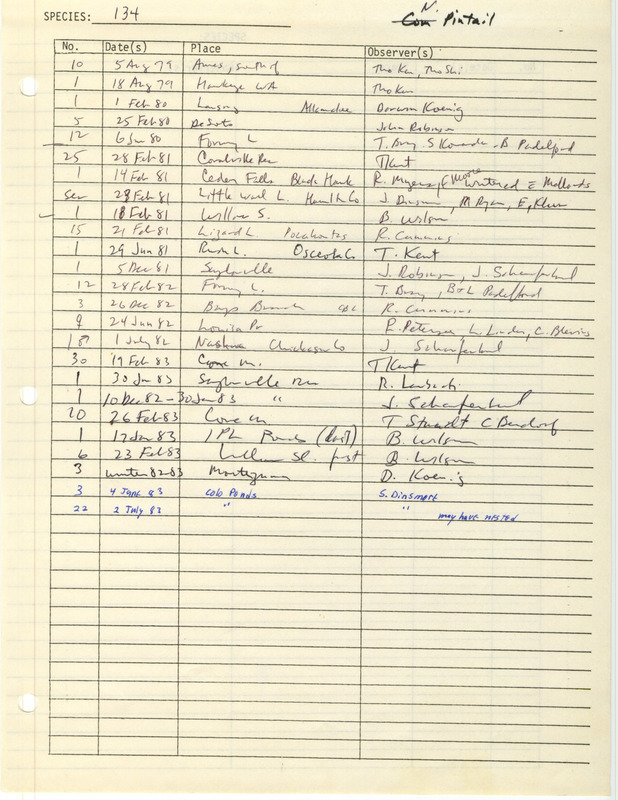 SPECIES: 134 N. Pintail
No. Date(s) Place Observer(s)
10 5 Aug 79 Ames, south of Tho Ken, Tho Shi
1 18 Aug 79 Hawkeye WA Tho Ken
1 1 Feb 80 Lansing Allamakee Darwin Koenig
5 25 Feb 80 DeSoto John Robinson
12 6 Jan 80 Forney L T. Bray S Kovanda B Padelford
25 28 Feb 81 Coralville Res T Kent
1 14 Feb 81 Cedar Falls Black Hawk R. Myers, F Moore wintered E Mollands
Sev 28 Feb 81 Little Wall L. Hamilt Co J. Dinsmore, M Ryan, E, Klaas
1 18 Feb 81 Willow S. B. Wilson
15 21 Feb 81 Lizard L. Pocahontas R. Cummins
1 29 Jun 81 Rush L. Osceola Co T. Kent
1 5 Dec 81 Saylorville J. Robinson, J. Schaufenbuel
12 28 Feb 82 Forney L. T. Bray, B+L Padelford
3 26 Dec 82 Bays Branch CBC R. Cummins
9 24 Jan 82 Louisa Po P. Petersen L. Linder, C. Blevins
18 1 July 82 Nashua Chickasaw Co J. Schaufenbuel
30 19 Feb 83 Cone M. T Kent
1 30 Jan 83 Saylorville Res R.
1 10 Dec 82 - 30 Jan 83 " J. Schaufenbuel
20 26 Feb 83 Cone M. T Staudt C Bendorf
1 12 Jan 83 IPL Ponds (last) B. Wilson
6 23 Feb 83 Willow Sl. first B. Wilson
3 winter 82-83 D. Koenig
3 4 June 83 Colo Ponds S. Dinsmore
22 2 July 83 " " may have nested